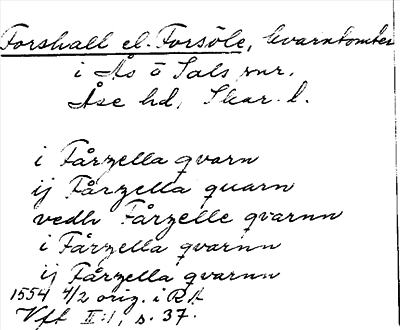 Forshall el. Forsöle, kvarntomter
i Ås o Sals snr.
Åse hd, Skar. l.
i Fårzella qvarn
ij Fårzella quarn
vedh Fårzelle qvarnn
i Fårzella qvarnn
ij Fårzella qvarnn
1554 4/2 orig. i RA
Vft II:1, s. 37.